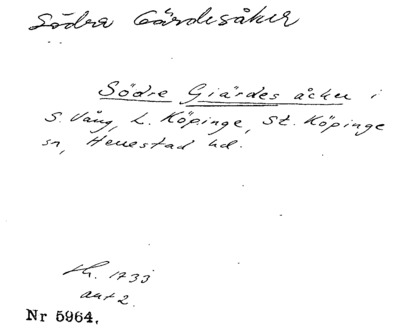 Södra Gärdesåker
Södre Giärdes åcker i
S. Vång, L. Köpinge, St. Köpinge
sn, Herrestad hd.
Lh. 1733
akt 2.
Nr 5964.